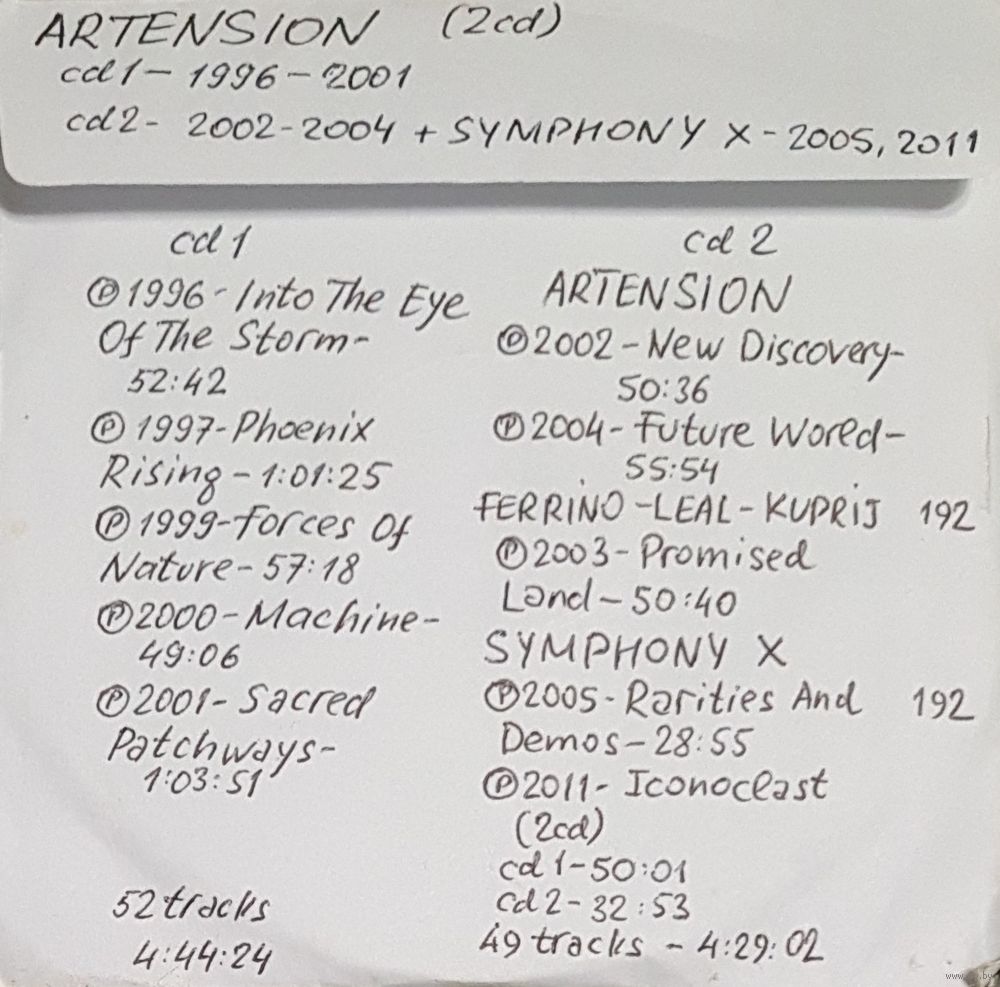 ARTENSION (2cd)
cd1 – 1996 – 2001
cd2 - 2002-2004 + SYMPHONY X - 2005, 2011
cd 1
Ⓟ1996 - Into The Eye
Of The Storm -
52:42
Ⓟ 1997-Phoenix
Rising – 1:01:25
Ⓟ 1999-Forces Of
Nature – 57:18
Ⓟ2000 – Machine -
49:06
Ⓟ2001 - Sacred
Patchways -
1:03:51
52 tracks
4:44:24
cd 2
ARTENSION
Ⓟ2002 – New Discovery -
50:36
Ⓟ2004 - Future World –
55:54
FERRINO – LEAL – KUPRIJ 192
Ⓟ2003 – Promised
Land – 50:40
SYMPHONY X
Ⓟ2005 - Rarities And 192
Demos – 28:55
Ⓟ2011 - Iconoclast
(2cd)
cd 1 – 50:01
cd 2 – 32:53
49 tracks – 4:29:02